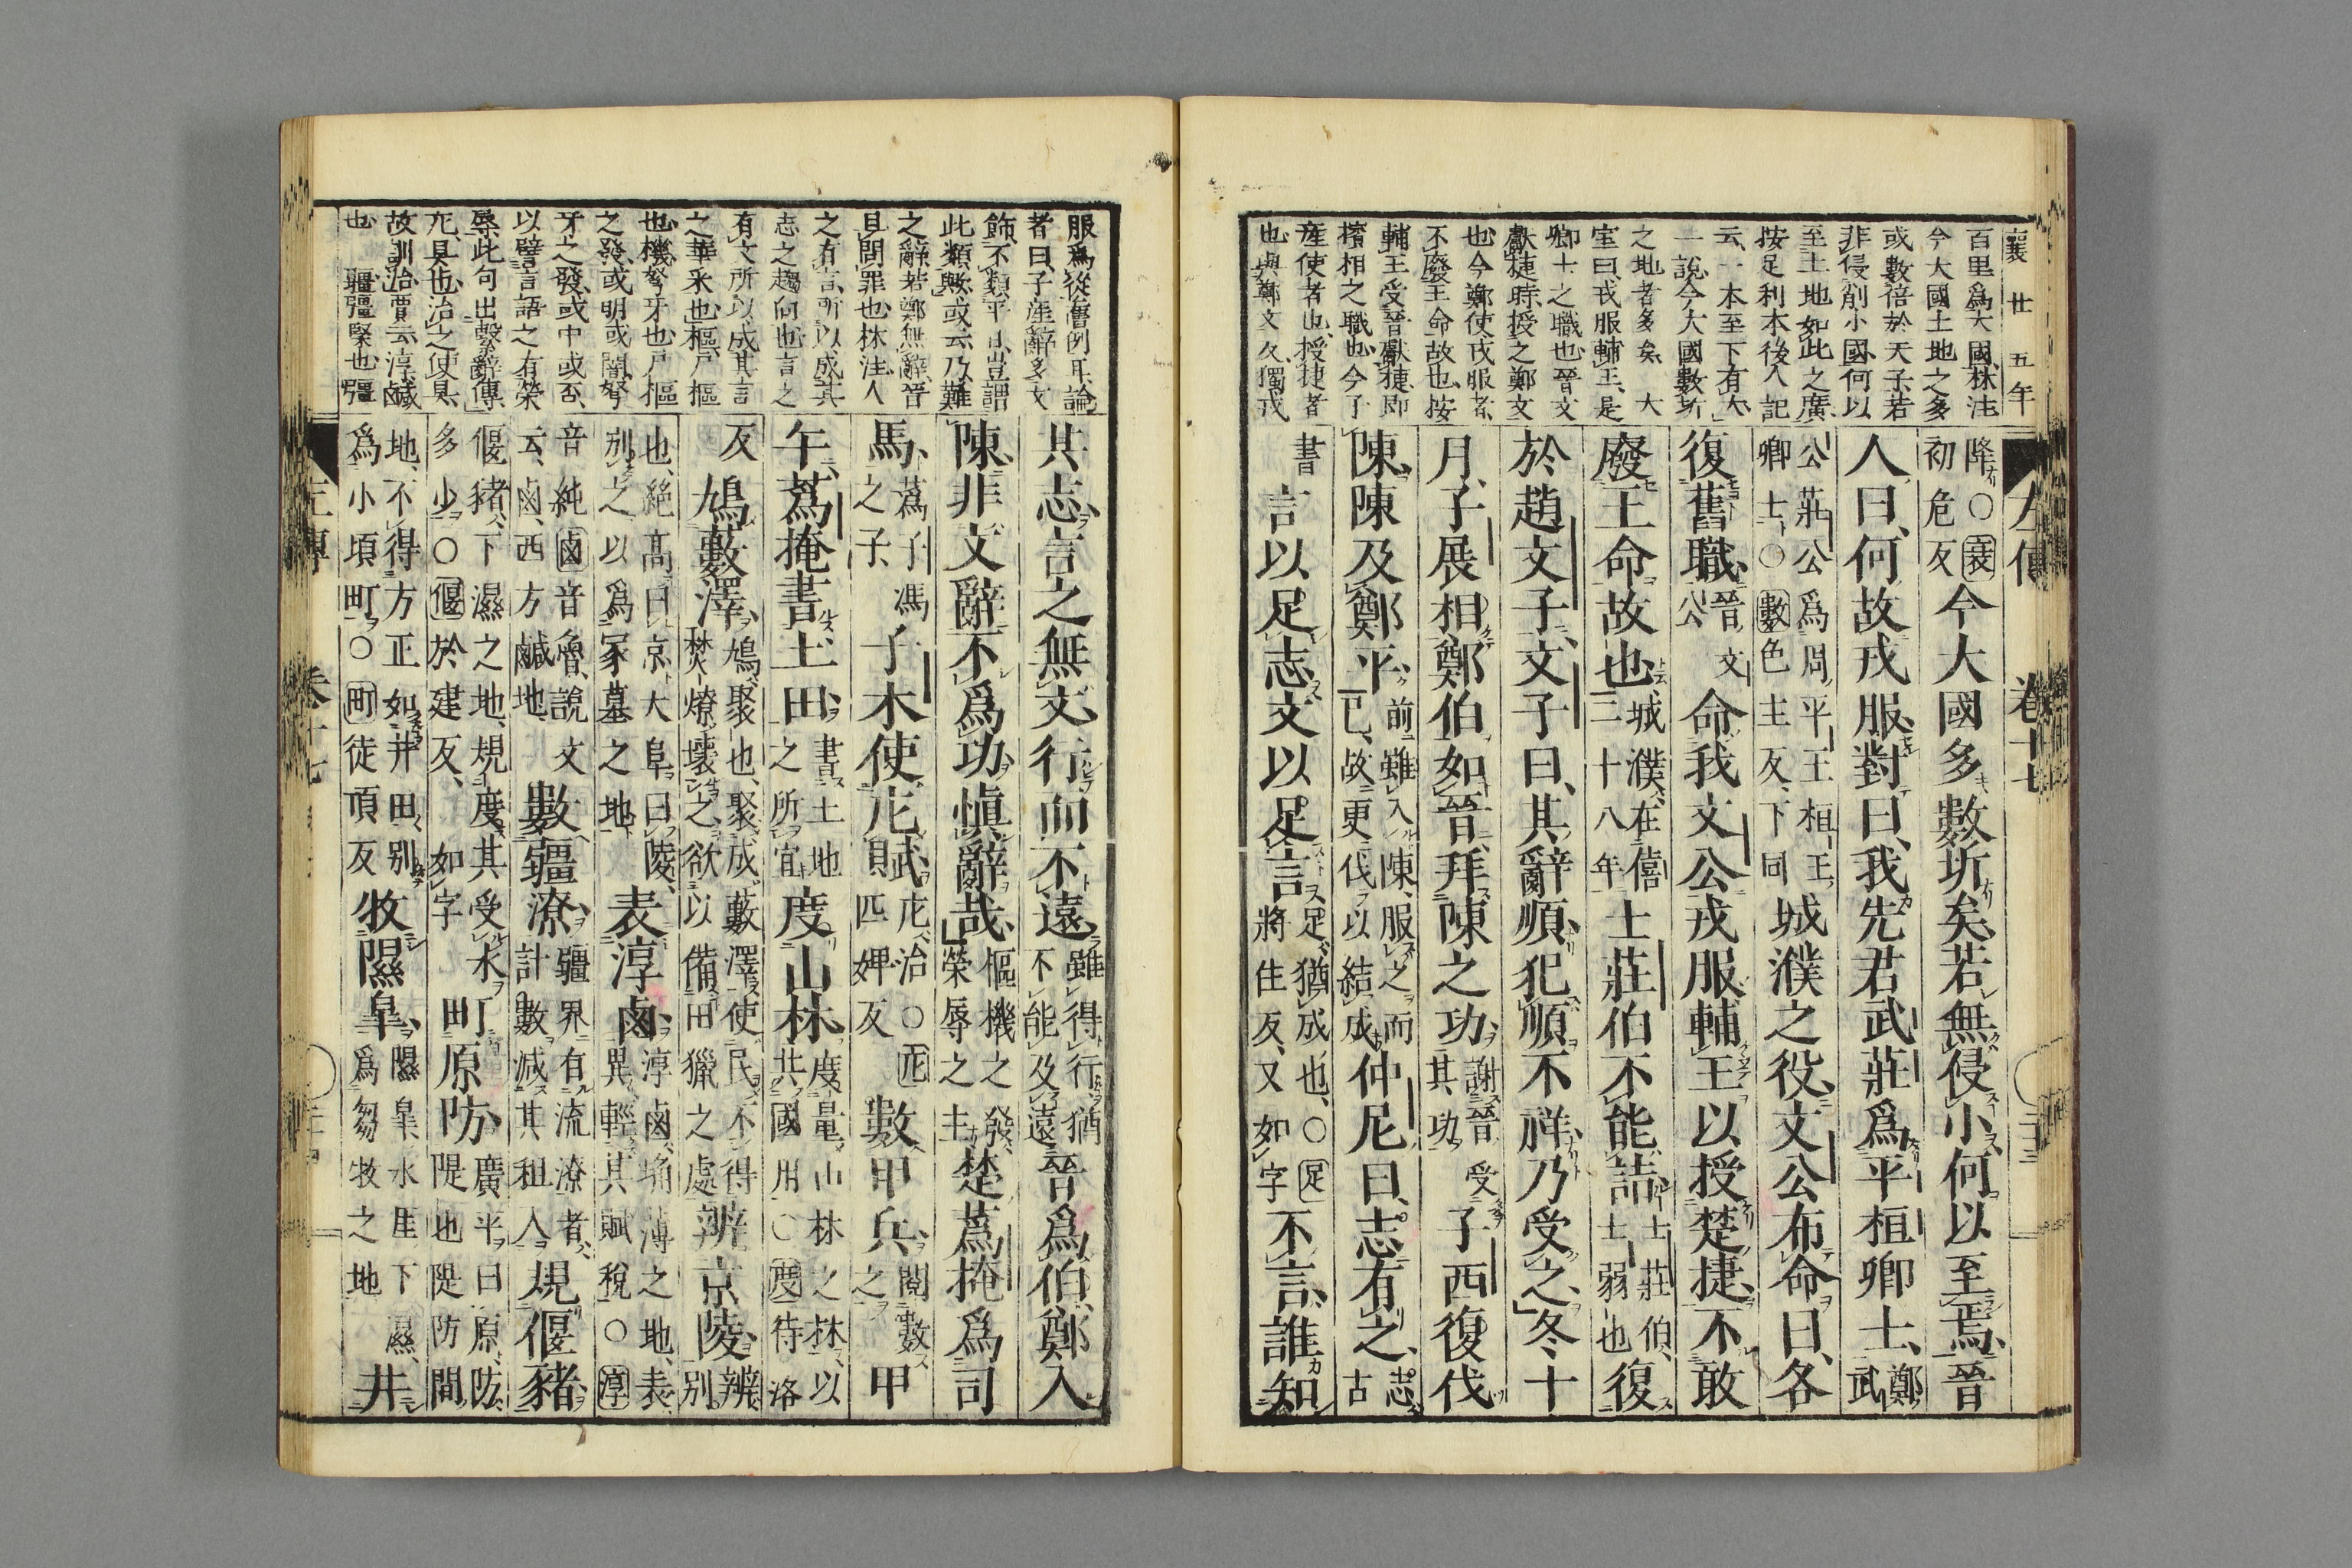 襄廿五年
百里爲大國林注
今大國土地之多
或數倍於天子若
非侵削小國何以
至土地如此之廣
按足利本後人記
云一本至下有大
一說今大國數圻
之地者多矣大
室曰戎服輔王是
卿士之職也晉文
獻捷時授之鄭文
也今鄭使戎服者
不廢王命故也按
輔王受晉獻捷即
擯相之職也今子
產使者也授捷者
也與鄭文久獨戎
左傳 卷十七
降○衰初危反今大國多數圻矣若無侵小何以至焉晉
人曰何故戎服對曰我先君武莊爲平桓卿士鄭武
公莊公爲周平王桓王卿士○數色主反下同城濮之役文公布命曰各
復舊職晉文公命我文公戎服輔王以授楚捷不敢
廢王命故也城濮在僖二十八年士莊伯不能詰士莊伯士弱也復
於趙文子文子曰其辭順犯順不祥乃受之冬十
月子展相鄭伯如晉拜陳之功謝晉受其功子西復伐
陳陳及鄭平前雖入陳服之而已故更伐以結成仲尼曰志有之志古
書言以足志文以足言足猶成也○足將住反又如字不言誰知
服爲從舊例耳論
者曰子產辭多文
飾不類平日豈謂
此類與或云乃難
之辭若鄭無辭晉
且問罪也林注人
之有言所以成其
志之趨向也言之
有文所以成其言
之華采也樞戶樞
也機弩牙也戶樞
之發或明或闇弩
牙之發或中或否
以譬言語之有榮
辱此句出繫辭傳
庀具也治之使具
故訓治賈云淳鹹
也 疆彊緊也彊
其志言之無文行而不遠雖得行猶不能及遠晉爲伯鄭入
陳非文辭不爲功愼辭哉樞機之發榮辱之主楚蔿掩爲司
馬蔿子馮之子子木使庀賦庀治○庀匹婢反數甲兵閱數之甲
午蔿掩書土田書土地之所宜度山林度量山林之材以共國用○度待洛
反鳩藪澤鳩聚也聚成藪澤使民不得焚燎壞之欲以備田獵之處辨京陵辨別
也絶高曰京大阜曰陵別之以爲冢墓之地表淳鹵淳鹵埆薄之地表異輕其賦稅○淳
音純鹵音魯說文云鹵西方鹹地數疆潦疆界有流潦者計數減其租入規偃豬
偃豬下濕之地規度其受水多少○偃於建反如字町原防廣平曰原防隄也隄防間
地不得方正如井田別爲小頃町○町徒頂反牧隰皋隰皋水厓下濕爲芻牧之地井